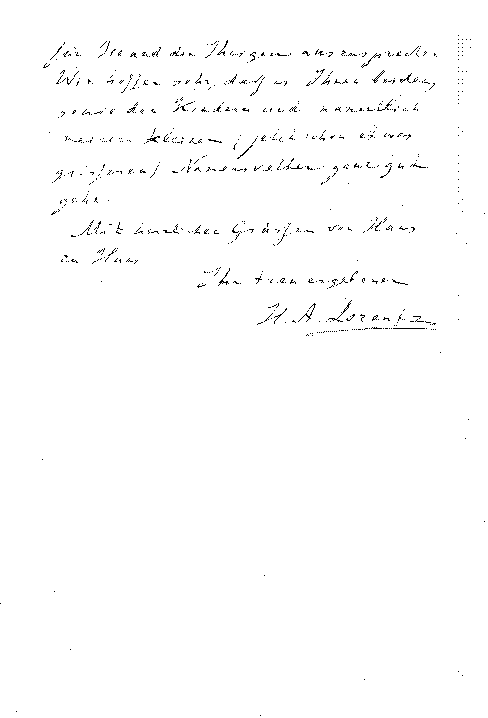 für Sie und die Ihrigen auszusprechen.
Wir hoffen sehr, daß es Ihnen beiden,
sowie den Kindern und namentlich
meinem kleinen (jetzt schon etwas
größeren) Namensvetter ganz gut
gehe.
Mit herzlichen Grüßen von Haus
zu Haus
Ihr treu ergebener
H. A. Lorentz